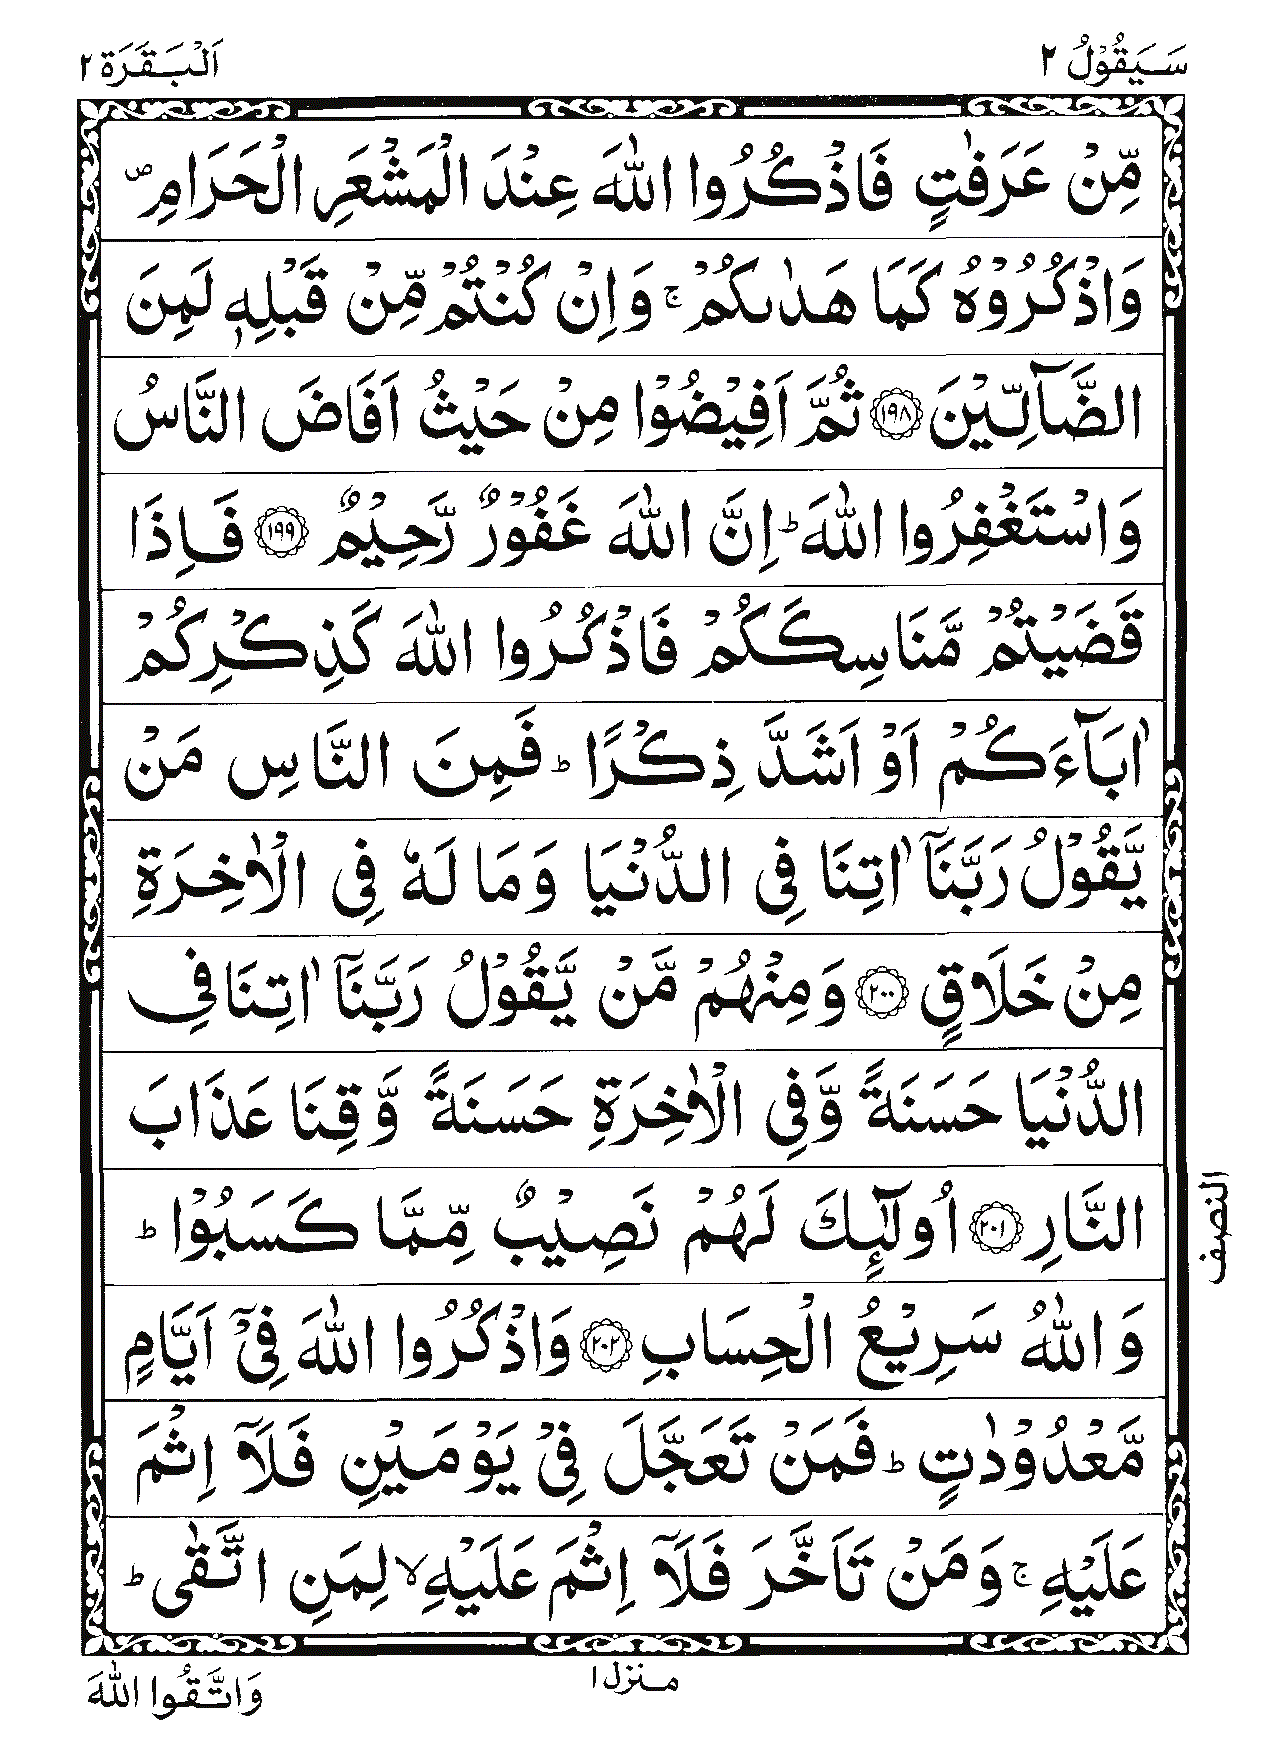 سَيَقُوْلُ ٢
اَلْبَقَرَة ٢
مِّنْ عَرَفٰتٍ فَاذْكُرُوا اللّٰهَ عِنْدَ الْمَشْعَرِ الْحَرَامِ ۪
وَاذْكُرُوْهُ كَمَا هَدٰىكُمْ ۚ وَاِنْ كُنْتُمْ مِّنْ قَبْلِهٖ لَمِنَ
الضَّآلِّيْنَ ۝١٩٨ ثُمَّ اَفِيْضُوْا مِنْ حَيْثُ اَفَاضَ النَّاسُ
وَاسْتَغْفِرُوا اللّٰهَ ؕ اِنَّ اللّٰهَ غَفُوْرٌ رَّحِيْمٌ ۝١٩٩ فَاِذَا
قَضَيْتُمْ مَّنَاسِكَكُمْ فَاذْكُرُوا اللّٰهَ كَذِكْرِكُمْ
اٰبَآءَكُمْ اَوْ اَشَدَّ ذِكْرًا ؕ فَمِنَ النَّاسِ مَنْ
يَّقُوْلُ رَبَّنَآ اٰتِنَا فِي الدُّنْيَا وَمَا لَهٗ فِي الْاٰخِرَةِ
مِنْ خَلَاقٍ ۝٢٠٠ وَمِنْهُمْ مَّنْ يَّقُوْلُ رَبَّنَآ اٰتِنَا فِي
الدُّنْيَا حَسَنَةً وَّفِي الْاٰخِرَةِ حَسَنَةً وَّقِنَا عَذَابَ
النَّارِ ۝٢٠١ اُولٰٓئِكَ لَهُمْ نَصِيْبٌ مِّمَّا كَسَبُوْا ؕ
النصف
وَاللّٰهُ سَرِيْعُ الْحِسَابِ ۝٢٠٢ وَاذْكُرُوا اللّٰهَ فِيْٓ اَيَّامٍ
مَّعْدُوْدٰتٍ ؕ فَمَنْ تَعَجَّلَ فِيْ يَوْمَيْنِ فَلَآ اِثْمَ
عَلَيْهِ ۚ وَمَنْ تَاَخَّرَ فَلَآ اِثْمَ عَلَيْهِ ۙ لِمَنِ اتَّقٰى ؕ
منزل ١
وَاتَّقُوا اللّٰهَ